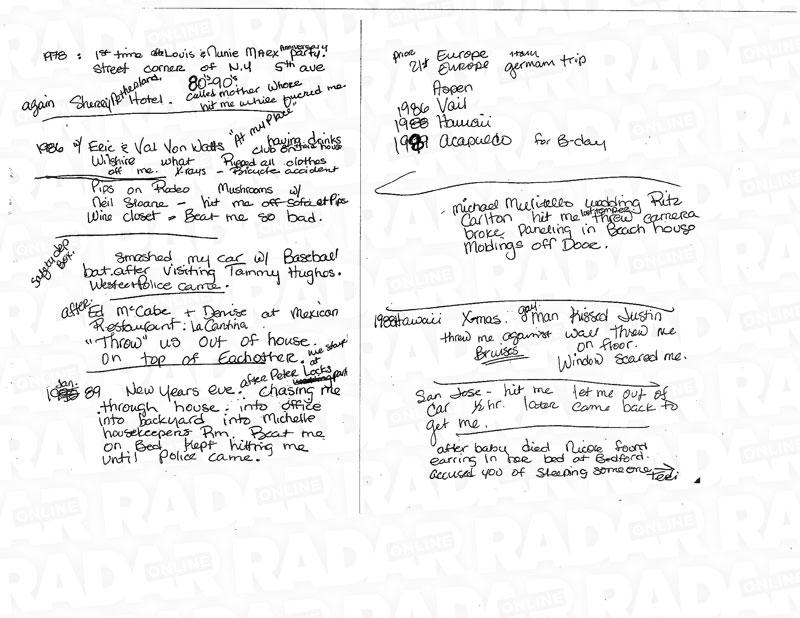 1978 : 1st time after Louis & Nunie Marx Anniversary party.
street corner of N.Y 5th ave
again Sherry/Netherland Hotel. 80's-90's called mother whore
hit me while he fucked me.
1986 w/ Eric & Val Von Watts "At my place"
having drinks
club on
Wilshire what Ripped all clothes
off me. Xrays - Bicycle accident
Pips on Rodeo Mushrooms w/
Neil Sloane - hit me off sofa at Pips
Wine closet = Beat me so bad.
Safety dep
Box.
smashed my car w/ Baseball
bat. after visiting Tammy Hughes.
Westec Police came.
after: Ed McCabe + Denise at Mexican
Restaurant: La Cantina
"Throw" us out of house.
on top of Eachother.
we start
at
Jan. 89 New Years eve. after Peter Locks party chasing me
through house : into office
into backyard into Michelle
housekeepers Rm. Beat me
on Bed kept hitting me
until Police came.
prior Europe
21st Europe german trip
Aspen
1986 Vail
1988 Hawaii
1989 Acapulco for B-day
michael Mulitello wedding Ritz
Carlton hit me threw camera
broke paneling in Beach house
Moldings off Door.
1988 Hawaii Xmas: gay man kissed Justin
threw me against wall threw me
Bruises on floor.
Window scared me.
San Jose - hit me let me out of
car ½ hr. later came back to
get me.
after baby died Nicole found
earring in her bed at Bedford.
accused you of sleeping someone →
Teri
RADAR ONLINE